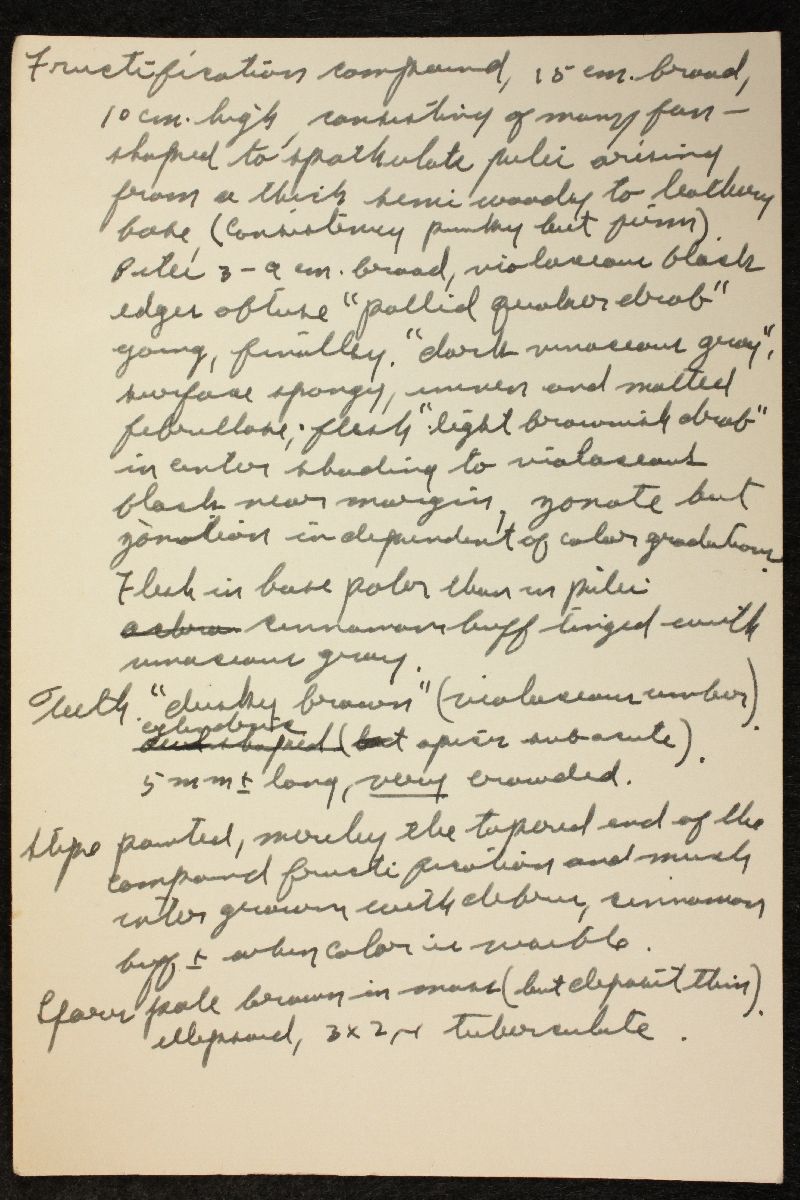 Fructification compound, 15 cm. broad,
10 cm. high, consisting of many fan-
shaped to spathulate pilei arising
from a thick semi woody to leathery
base, (consistency punky but firm).
Pilei 3-9 cm. broad, violaceous black
edges obtuse "pallid quaker drab"
young, finally, "dark vinaceous gray",
surface spongy, uneven and matted
febrillose; flesh "light brownish drab"
in center shading to violaceous
black near margin, zonate but
zonation independent of color gradations.
Flesh in base paler than in pilei
cinnamon buff tinged with
vinaceous gray.
Teeth "dusky brown" (violaceous umber).
cylindric
awl shaped (but apices subacute).
5 mm ± long, very crowded.
Stipe pointed, merely the tapered end of the
compound fructification and much
inter grown with debris, cinnamon
buff ± when color is visible.
Spores pale brown in mass (but deposit thin).
ellipsoid, 3 x 2 μ tuberculate.